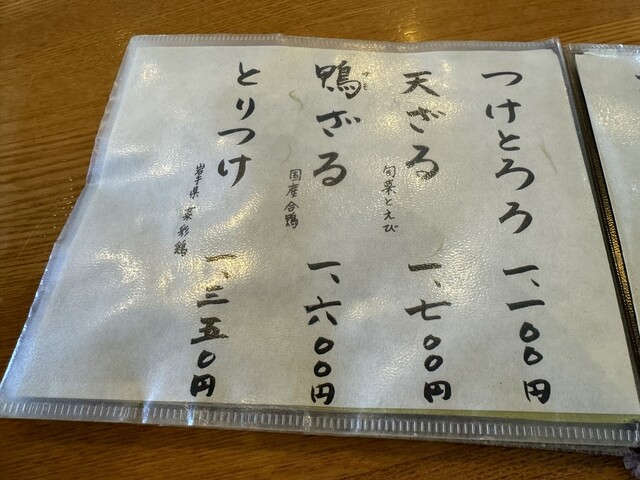 つけとろろ 一、一〇〇円
天ざる 一、七〇〇円
旬菜とえび
鴨ざる 一、六〇〇円
国産合鴨
とりつけ 一、三五〇円
岩手県 菜彩鶏